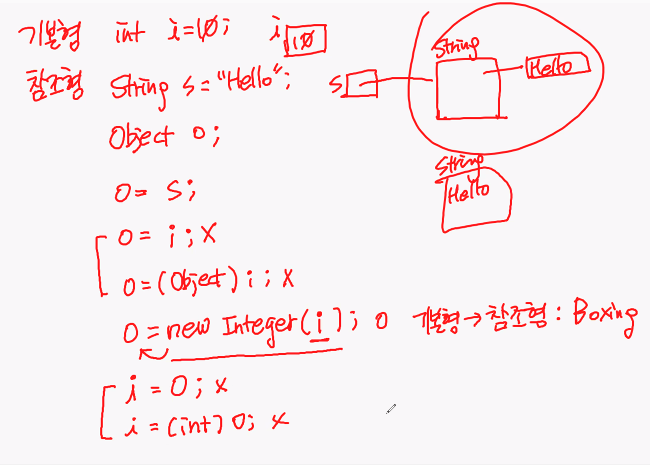 기본형 int i=10; i 10
참조형 String s="Hello"; s String Hello
Object o;
String
Hello
o= s;
o= i; X
o=(Object) i; X
o=new Integer(i); o 기본형→참조형: Boxing
i = o; x
i = (int) o; x